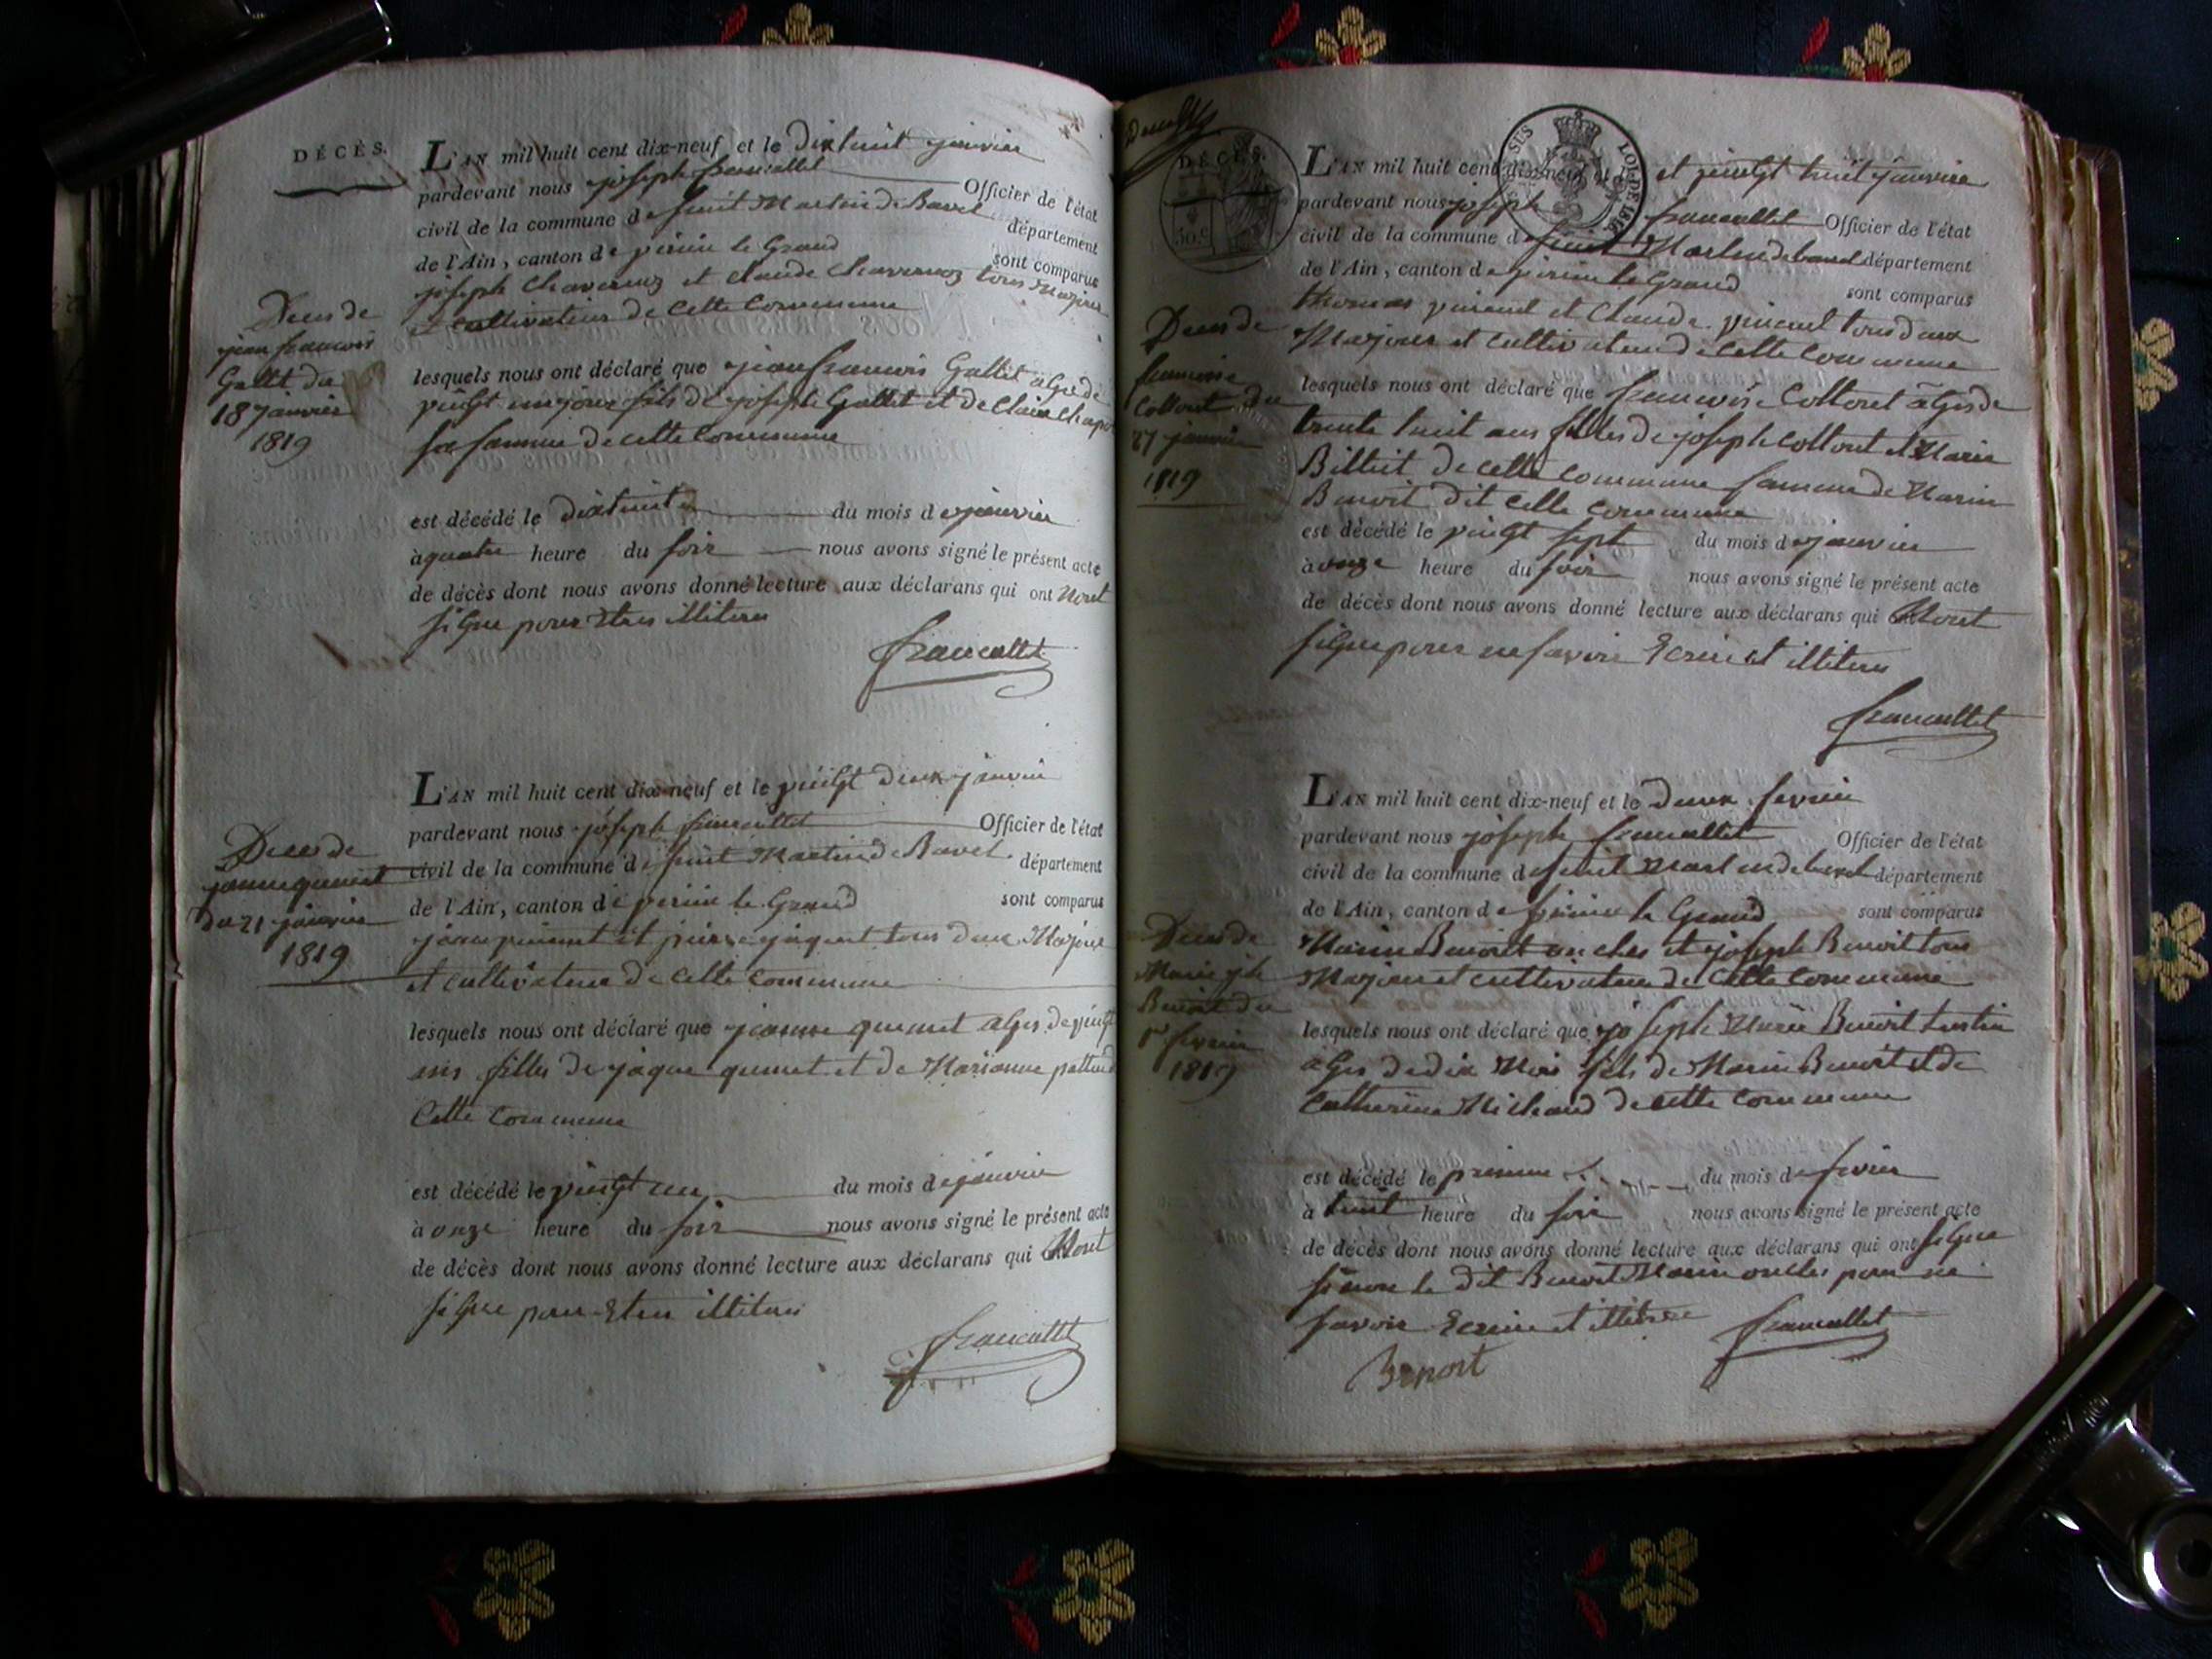 DÉCÈS.
L'AN mil huit cent dix-neuf et le dixhuit janvier
pardevant nous joseph francallet Officier de l'état
civil de la commune de saint Martin de Bavel département
de l'Ain, canton de virieu le Grand sont comparus
joseph Chavernoz et claude Chavernoz tous Majeur
et cultivateur de cette Commune
Deces de
jean francois
Gallet du
18 janvier
1819
lesquels nous ont déclaré que jean francois Gallet agé de
vingt un jour fils de joseph Gallet et de Claire
sa famme de cette Commune
est décédé le dixhuit du mois de janvier
à quatre heure du soir nous avons signé le présent acte
de décès dont nous avons donné lecture aux déclarans qui ont Nont
signe pour Etre illiteres
francallet
L'AN mil huit cent dix-neuf et le vingt deux janvier
pardevant nous joseph francallet Officier de l'état
civil de la commune de saint Martin de Bavel département
de l'Ain, canton de virieu le Grand sont comparus
et pierre tous deux Majeur
et cultivateur de cette Commune
Deces de
jeanne
du 21 janvier
1819
lesquels nous ont déclaré que jeanne agés de vingt
ans filles de jaque et de Marianne
Cette Commune
est décédé le vingt un du mois de janvier
à onze heure du soir nous avons signé le présent acte
de décès dont nous avons donné lecture aux déclarans qui Nont
signe pour Etre illiteres
francallet
DÉCÈS.
50 c
SUS LOI DE 1816
L'AN mil huit cent dix-neuf et le et vingt huit janvier
pardevant nous joseph francallet Officier de l'état
civil de la commune de saint Martin de bavel département
de l'Ain, canton de virieu le Grand sont comparus
thomas et Claude tous deux
Majeur et cultivateur de cette Commune
Deces de
francoise
Collout du
27 janvier
1819
lesquels nous ont déclaré que francoise Collout agés de
trente huit ans filles de joseph Collout et Marie
de cette Commune famme de Marin
Benoit dit cette Commune
est décédé le vingt sept du mois de janvier
à onze heure du soir nous avons signé le présent acte
de décès dont nous avons donné lecture aux déclarans qui Nont
signe pour ne savoir Ecrire et illiteres
francallet
L'AN mil huit cent dix-neuf et le deux fevrier
pardevant nous joseph francallet Officier de l'état
civil de la commune de saint Martin de bavel département
de l'Ain, canton de virieu le Grand sont comparus
Marin Benoit oncles et joseph Benoit tous
Majeur et cultivateur de Cette Commune
Deces de
Marie jh
Benoit du
1r fevrier
1819
lesquels nous ont déclaré que joseph Marie Benoit
agés de dix Mois fils de Marin Benoit et de
Catherine Micheaud de cette Commune
est décédé le premier du mois de fevrier
à huit heure du soir nous avons signé le présent acte
de décès dont nous avons donné lecture aux déclarans qui ont signe
sinon le dit Benoit Marin oncles pour ne
savoir Ecrire et illitere francallet
Benoit